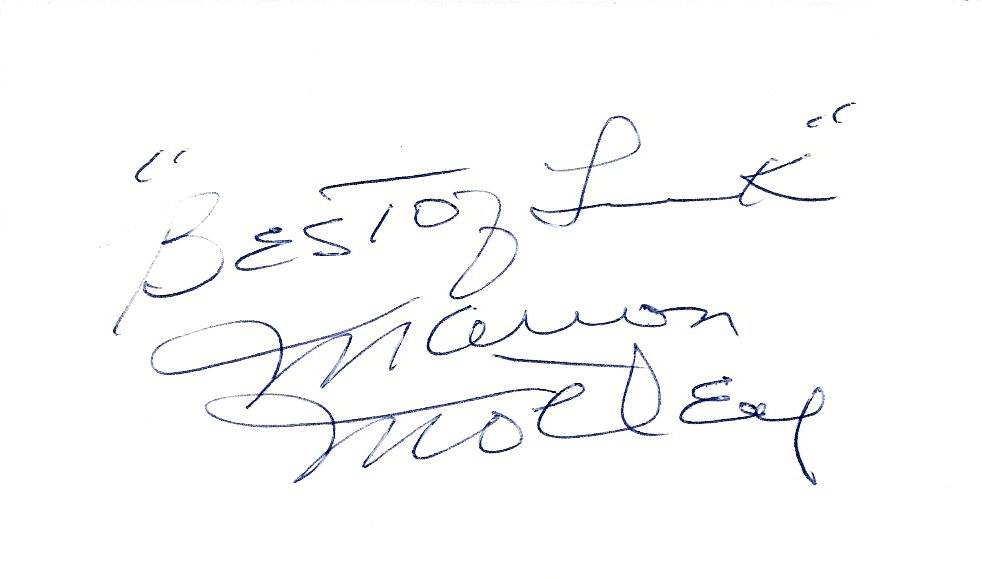 "Best of Luck"
Marion
Motley